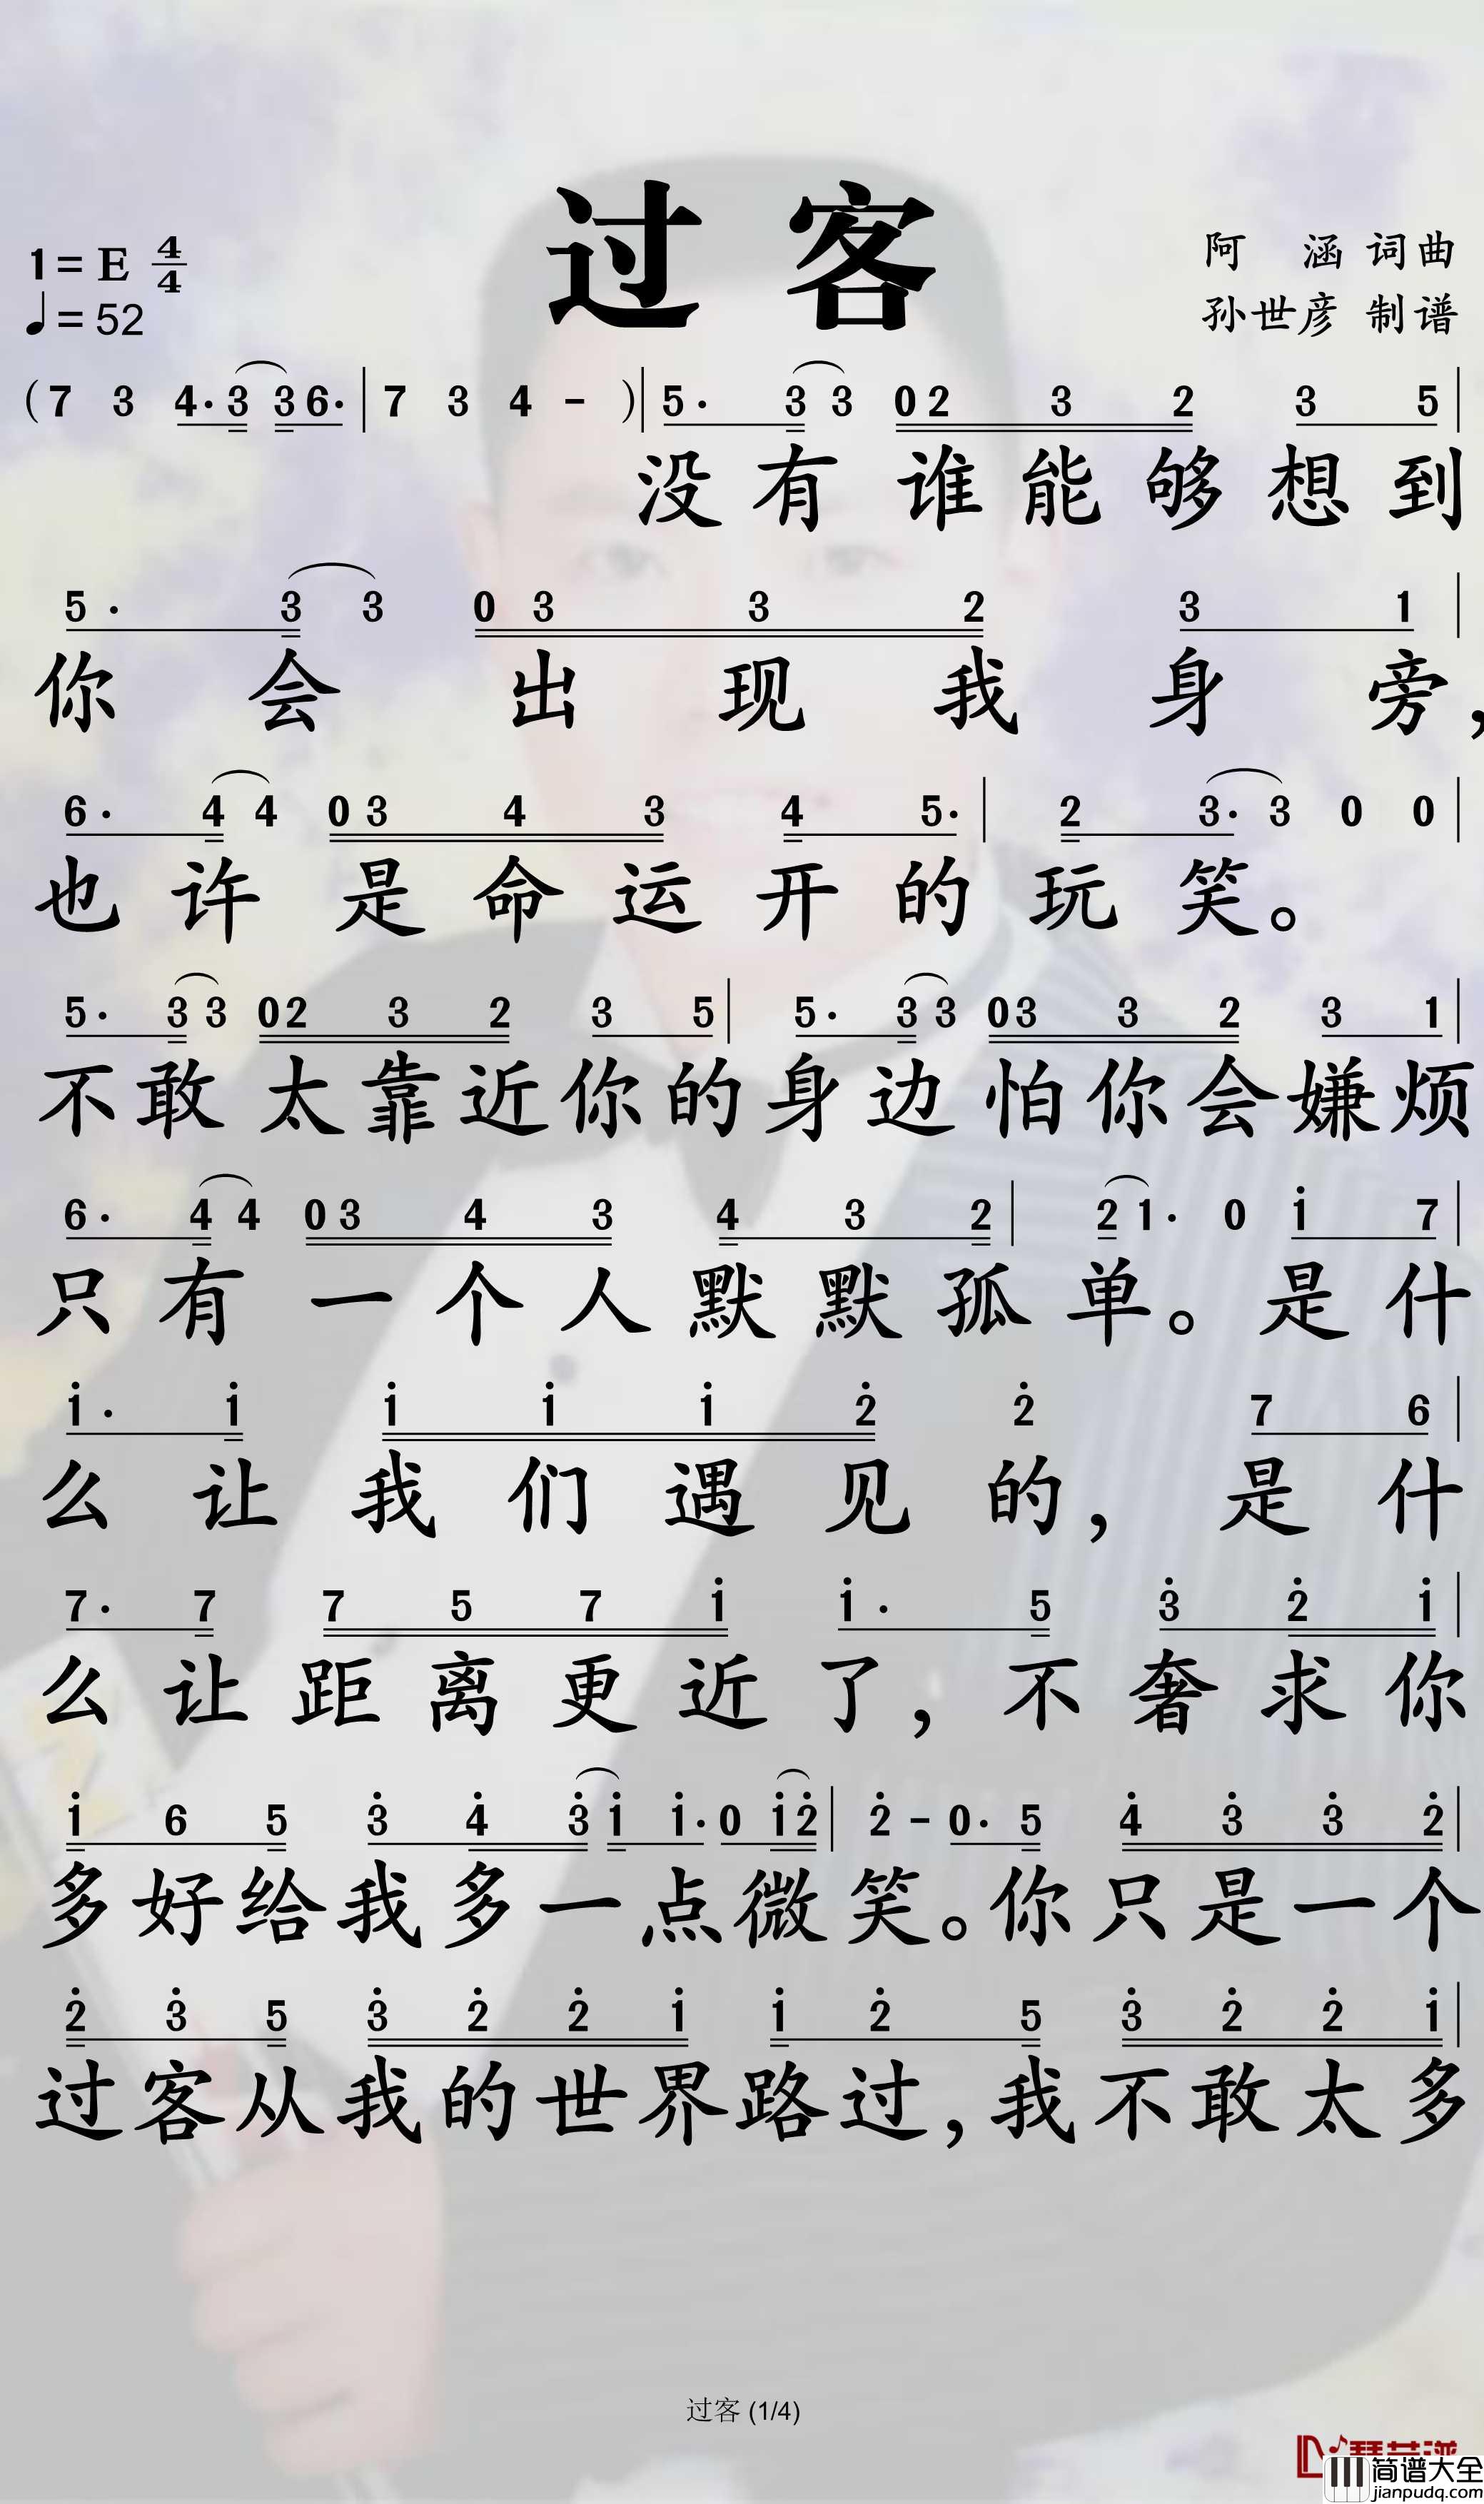 过客
1=E 4/4
♩=52
阿 涵 词曲
孙世彦 制谱
(7 3 4·3 36·|7 3 4 - )|5· 3 3 02 3 2 3 5|
没有谁能够想到
5· 3 3 0 3 3 2 3 1|
你会出现我身旁，
6· 4 4 03 4 3 4 5·|2 3· 3 0 0|
也许是命运开的玩笑。
5· 3 3 02 3 2 3 5|5· 3 3 03 3 2 3 1|
不敢太靠近你的身边怕你会嫌烦
6· 4 4 03 4 3 4 3 2|2 1· 0 i 7|
只有一个人默默孤单。是什
i· i i i i 2̇ 2̇ 7 6|
么让我们遇见的，是什
7· 7 7 5 7 i i· 5 3̇ 2̇ i|
么让距离更近了，不奢求你
i 6 5 3̇ 4̇ 3̇ i i· 0 i 2̇|2̇ - 0· 5 4̇ 3̇ 3̇ 2̇|
多好给我多一点微笑。你只是一个
2̇ 3̇ 5 3̇ 2̇ 2̇ i i 2̇ 5 3̇ 2̇ 2̇ i|
过客从我的世界路过，我不敢太多
过客 (1/4)
简谱大全
jianpudq.com